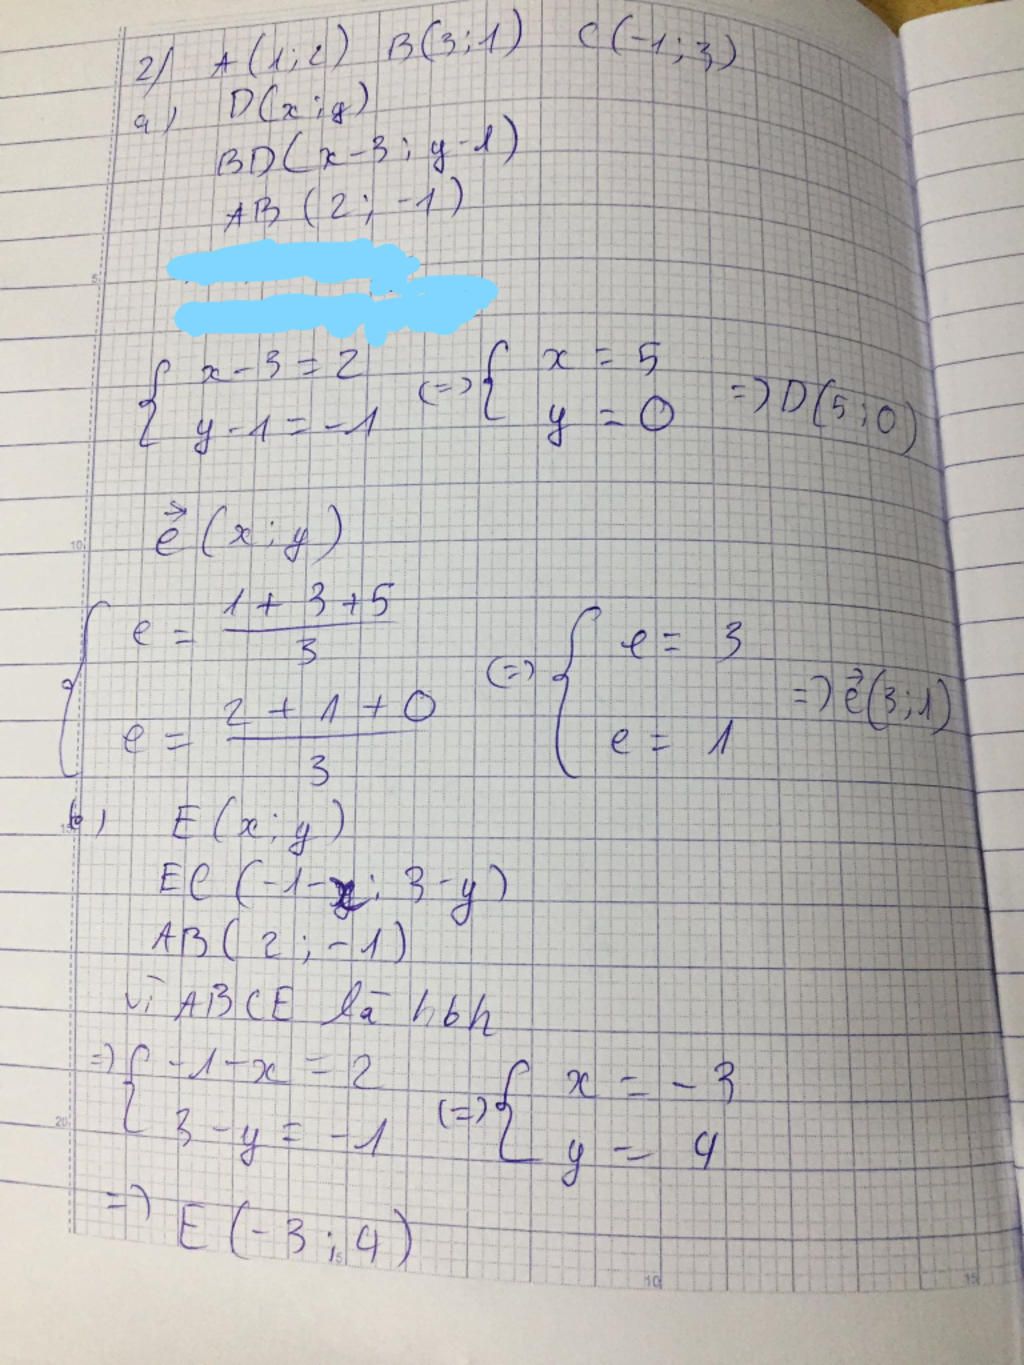 2) A(1;2) B(3;1) C(-1;3)
a) D(x;y)
BD(x-3; y-1)
AB(2; -1)
{ x-3=2 (=) { x = 5
{ y-1=-1 { y = 0 =) D(5;0)
e⃗(x;y)
{ e = (1+3+5)/3 (=) { e = 3
{ e = (2+1+0)/3 { e = 1 =) e⃗(3;1)
b) E(x;y)
EC(-1-x; 3-y)
AB(2; -1)
vì ABCE là hbh
=) { -1-x = 2 (=) { x = -3
{ 3-y = -1 { y = 4
=) E(-3;4)
5
10
15
20
5
10
15